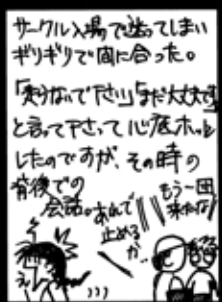 サークル入場で迷ってしまい
ギリギリで間に合った。
「走らないで下さい」「まだ大丈夫です」
と言って下さって心底ホッと
したのですが、その時の
背後での
会話。
もう一団
来たな
あんで
止める
か…